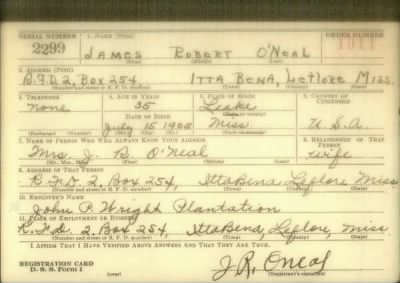 SERIAL NUMBER 1. NAME (Print) ORDER NUMBER
2299 JAMES ROBERT O'NEAL 1011
(First) (Middle) (Last)
2. ADDRESS (Print)
R.F.D 2, Box 254 ITTA BENA, LEFLORE MISS
(Number and street or R. F. D. number) (Town) (County) (State)
3. TELEPHONE 4. AGE IN YEARS 5. PLACE OF BIRTH 6. COUNTRY OF CITIZENSHIP
None 35 Leake
DATE OF BIRTH (Town or county)
July 15 1905 Miss U.S.A.
(Exchange) (Number) (Mo.) (Day) (Yr.) (State or country)
7. NAME OF PERSON WHO WILL ALWAYS KNOW YOUR ADDRESS 8. RELATIONSHIP OF THAT PERSON
Mrs J. O'Neal wife
(Mr., Mrs., Miss) (First) (Middle) (Last)
9. ADDRESS OF THAT PERSON
R.F.D. 2, Box 254, Itta Bena, Leflore, Miss
(Number and street or R. F. D. number) (Town) (County) (State)
10. EMPLOYER'S NAME
John P. Wright Plantation
11. PLACE OF EMPLOYMENT OR BUSINESS
R.F.D. 2, Box 254, Itta Bena, Leflore, Miss.
(Number and street or R. F. D. number) (Town) (County) (State)
I AFFIRM THAT I HAVE VERIFIED ABOVE ANSWERS AND THAT THEY ARE TRUE.
REGISTRATION CARD J.R. Oneal
D. S. S. Form 1 (over) (Registrant's signature)